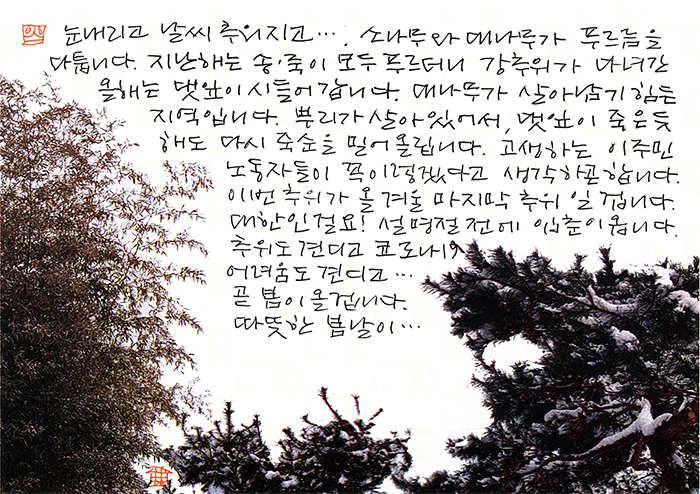 눈내리고 날씨 추워지고…. 소나무와 대나무가 푸르름을
다툽니다. 지난해는 송·죽이 모두 푸르더니 강추위가 다녀간
올해는 댓잎이 시들어 갑니다. 대나무가 살아남기 힘든
지역입니다. 뿌리가 살아있어서, 댓잎이 죽은듯
해도 다시 죽순을 밀어올립니다. 고생하는 이주민
노동자들이 꼭이렇겠다고 생각하곤합니다.
이번 추위가 올 겨울 마지막 추위 일 겁니다.
대한인걸요! 설명절전에 입춘이 옵니다.
추위도 견디고 코로나19
어려움도 견디고…
곧 봄이 올겁니다.
따뜻한 봄날이…